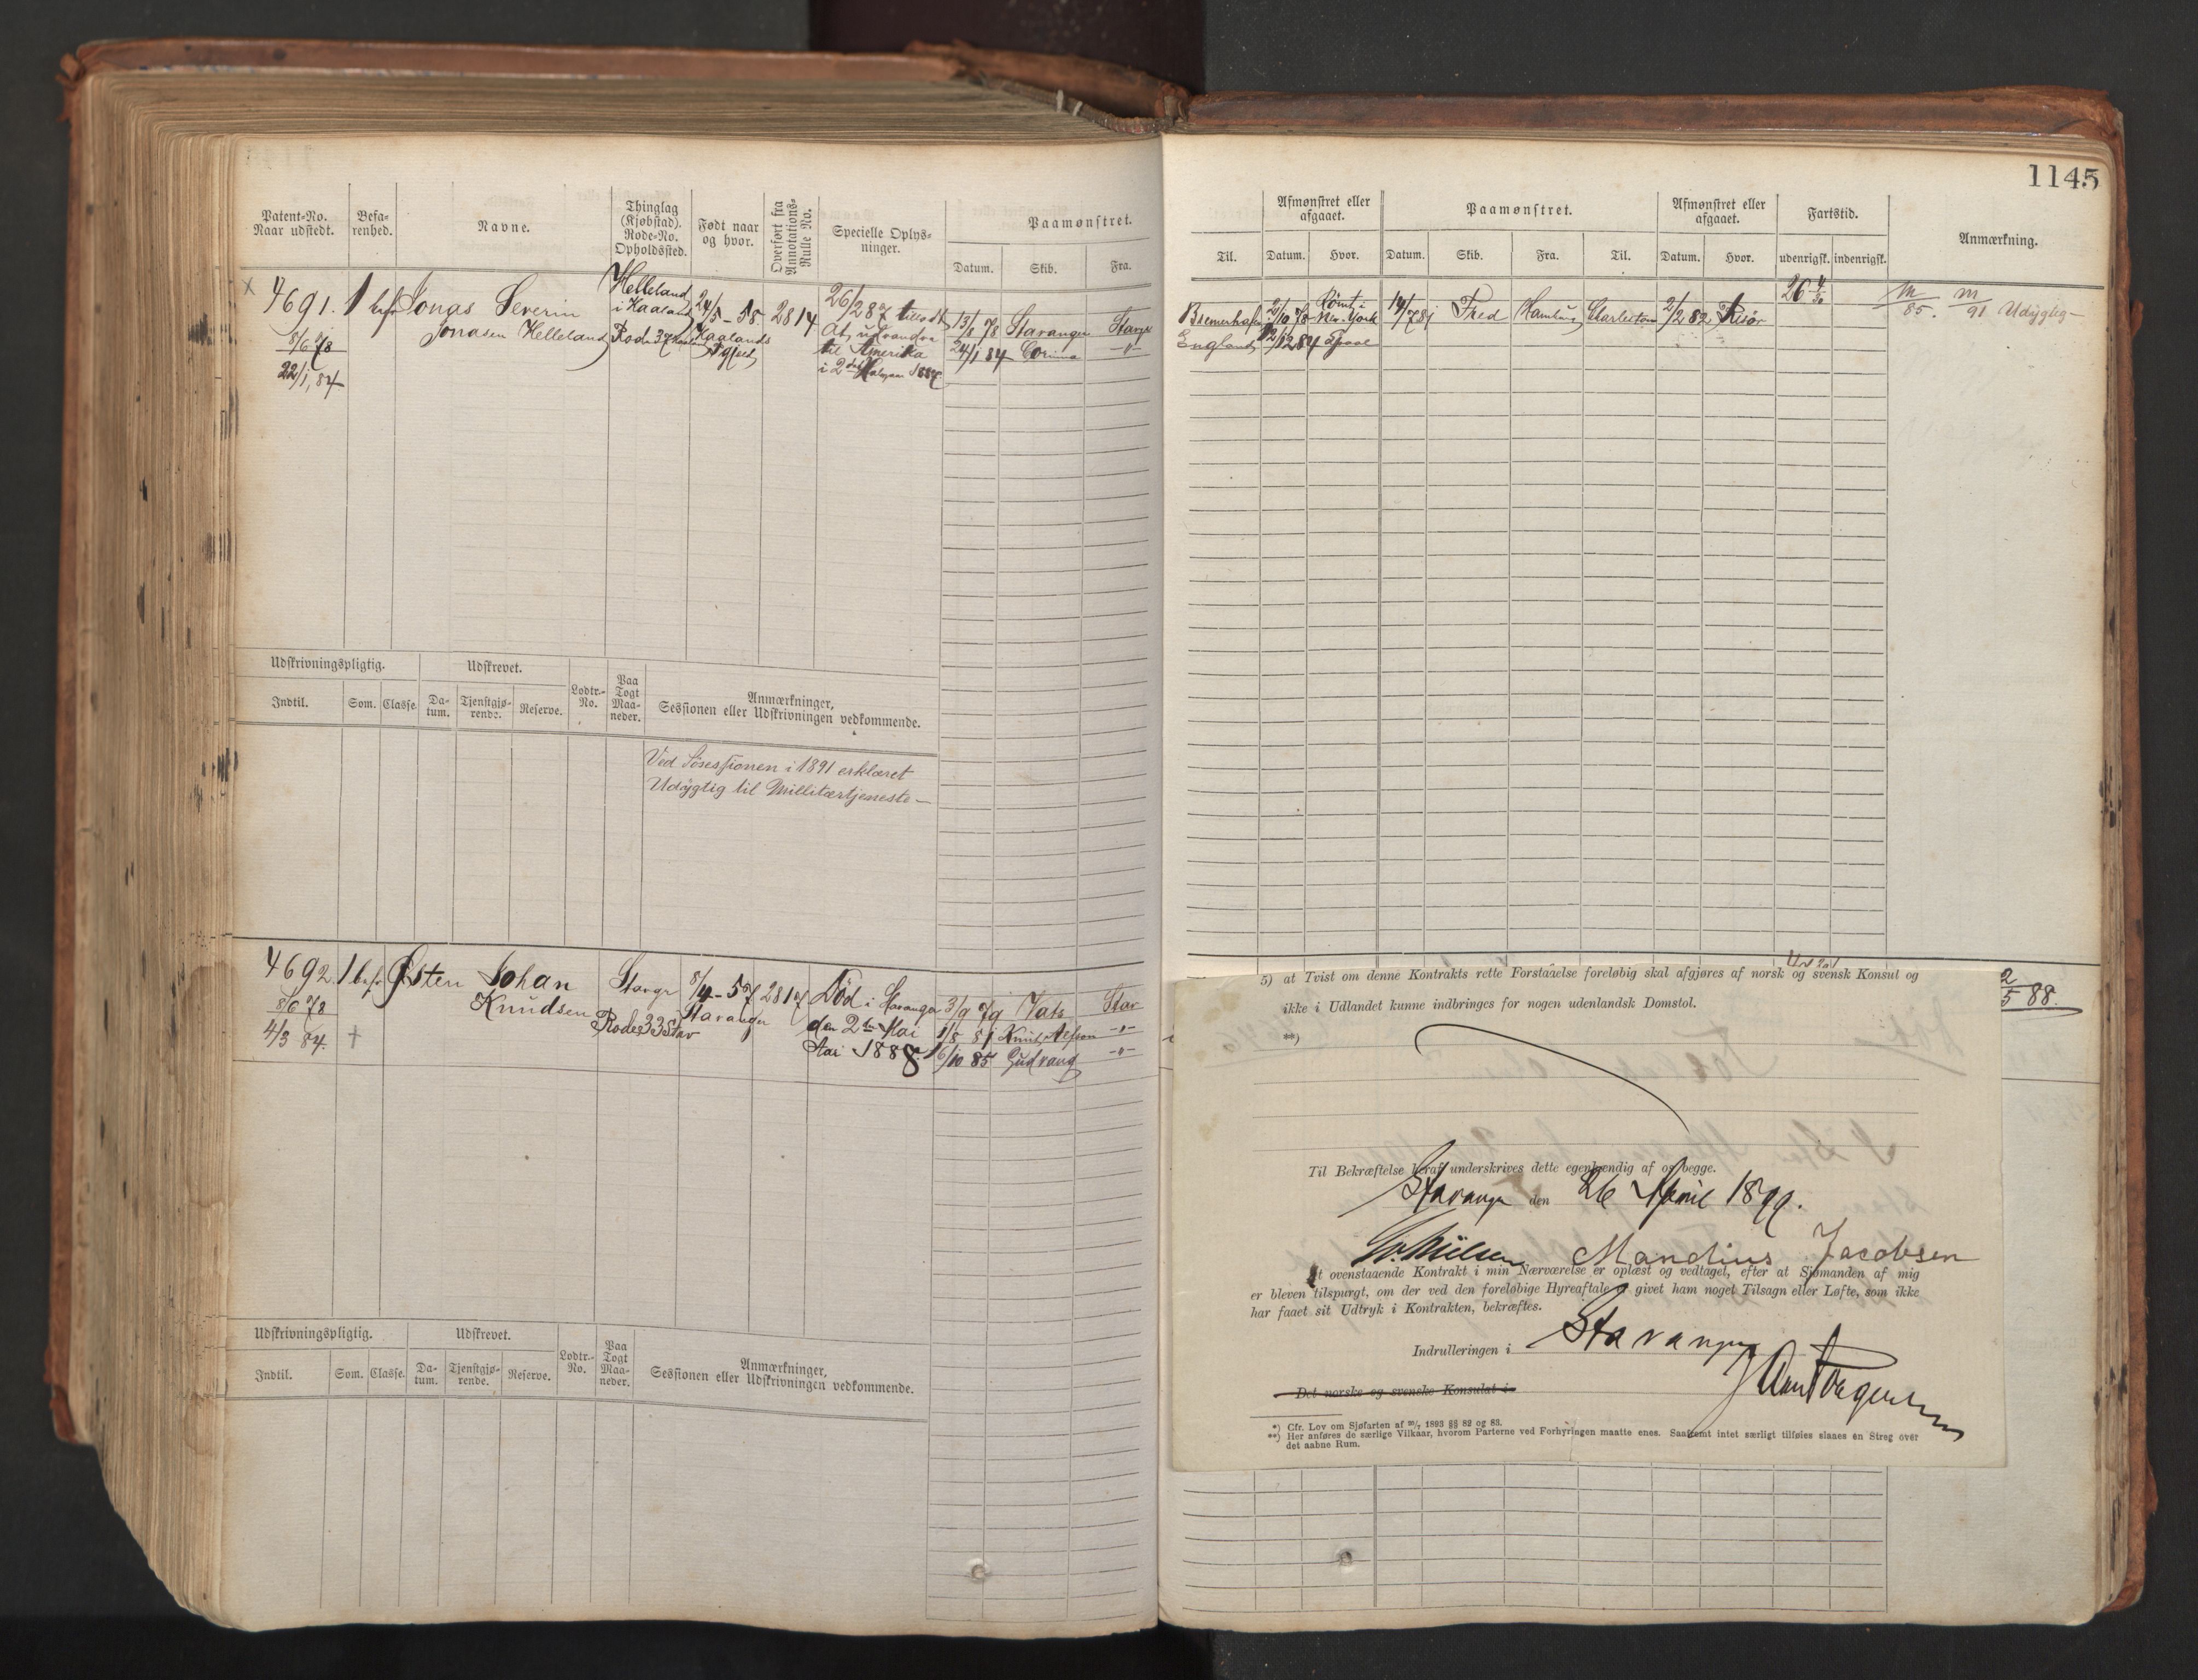 1145
Patent-No. Naar udstedt.
Befarenhed.
Navne.
Thinglag (Kjøbstad). Rode-No. Opholdssted.
Født naar og hvor.
Overført fra Annotations-Rulle No.
Specielle Oplysninger.
Paamønstret.
Datum. Skib. Fra.
Til.
Afmønstret eller afgaaet.
Datum. Hvor.
Paamønstret.
Datum. Skib. Fra. Til.
Afmønstret eller afgaaet.
Datum. Hvor.
Fartstid.
udenrigsk. indenrigsk.
Anmærkning.
4691. 1 bf Jonas Severin
Jonasen Helleland
8/6 78
22/1, 84
Helleland
24/5 - 58
2814
26/2 87
At udvandre
til Amerika
13/8 78 Stavanger
24/1 84 Corinna
Bremerhafen
England
New-York
Fred Hamburg Charlestown 2/2 82 Risør
26
85. 91 Udygtig -
Udskrivningspligtig. Udskrevet.
Indtil. Som. Classe. Datum. Tjenstgjørende. Reserve.
Lodtr.-No.
Paa Togt Maaneder.
Anmærkninger,
Sessionen eller Udskrivningen vedkommende.
Ved Søsessionen i 1891 erklæret
Udygtig til Millitærtjeneste -
4692 1 bf. Østen Johan
Knudsen
8/6 78
4/3 84.
Stavgr
Rode 33 Stav
8/4 - 57
Stavanger
2817
Död i Stavanger
den 2den Mai
1888.
3/9 79 Vats Stav
1/8 81 Knut Alfson -"-
6/10 85 Gudvang -"-
2/5 88.
5) at Tvist om denne Kontrakts rette Forstaaelse foreløbig skal afgjøres af norsk og svensk Konsul og
ikke i Udlandet kunne indbringes for nogen udenlandsk Domstol.
**)
Til Bekræftelse heraf underskrives dette egenhændig af os begge.
Stavanger den 26 April 1899.
Nielsen Mandius Jacobsen
At ovenstaaende Kontrakt i min Nærværelse er oplæst og vedtaget, efter at Sjømanden af mig
er bleven tilspurgt, om der ved den foreløbige Hyreaftale er givet ham noget Tilsagn eller Løfte, som ikke
har faaet sit Udtryk i Kontrakten, bekræftes.
Indrulleringen i Stavanger
Det norske og svenske Konsulat i
*) Cfr. Lov om Sjøfarten af 20/7 1893 §§ 82 og 83.
**) Her anføres de særlige Vilkaar, hvorom Parterne ved Forhyringen maatte enes. Saafremt intet særligt tilføies slaaes en Streg over
det aabne Rum.
Udskrivningspligtig. Udskrevet.
Indtil. Som. Classe. Datum. Tjenstgjørende. Reserve.
Lodtr.-No.
Paa Togt Maaneder.
Anmærkninger,
Sessionen eller Udskrivningen vedkommende.